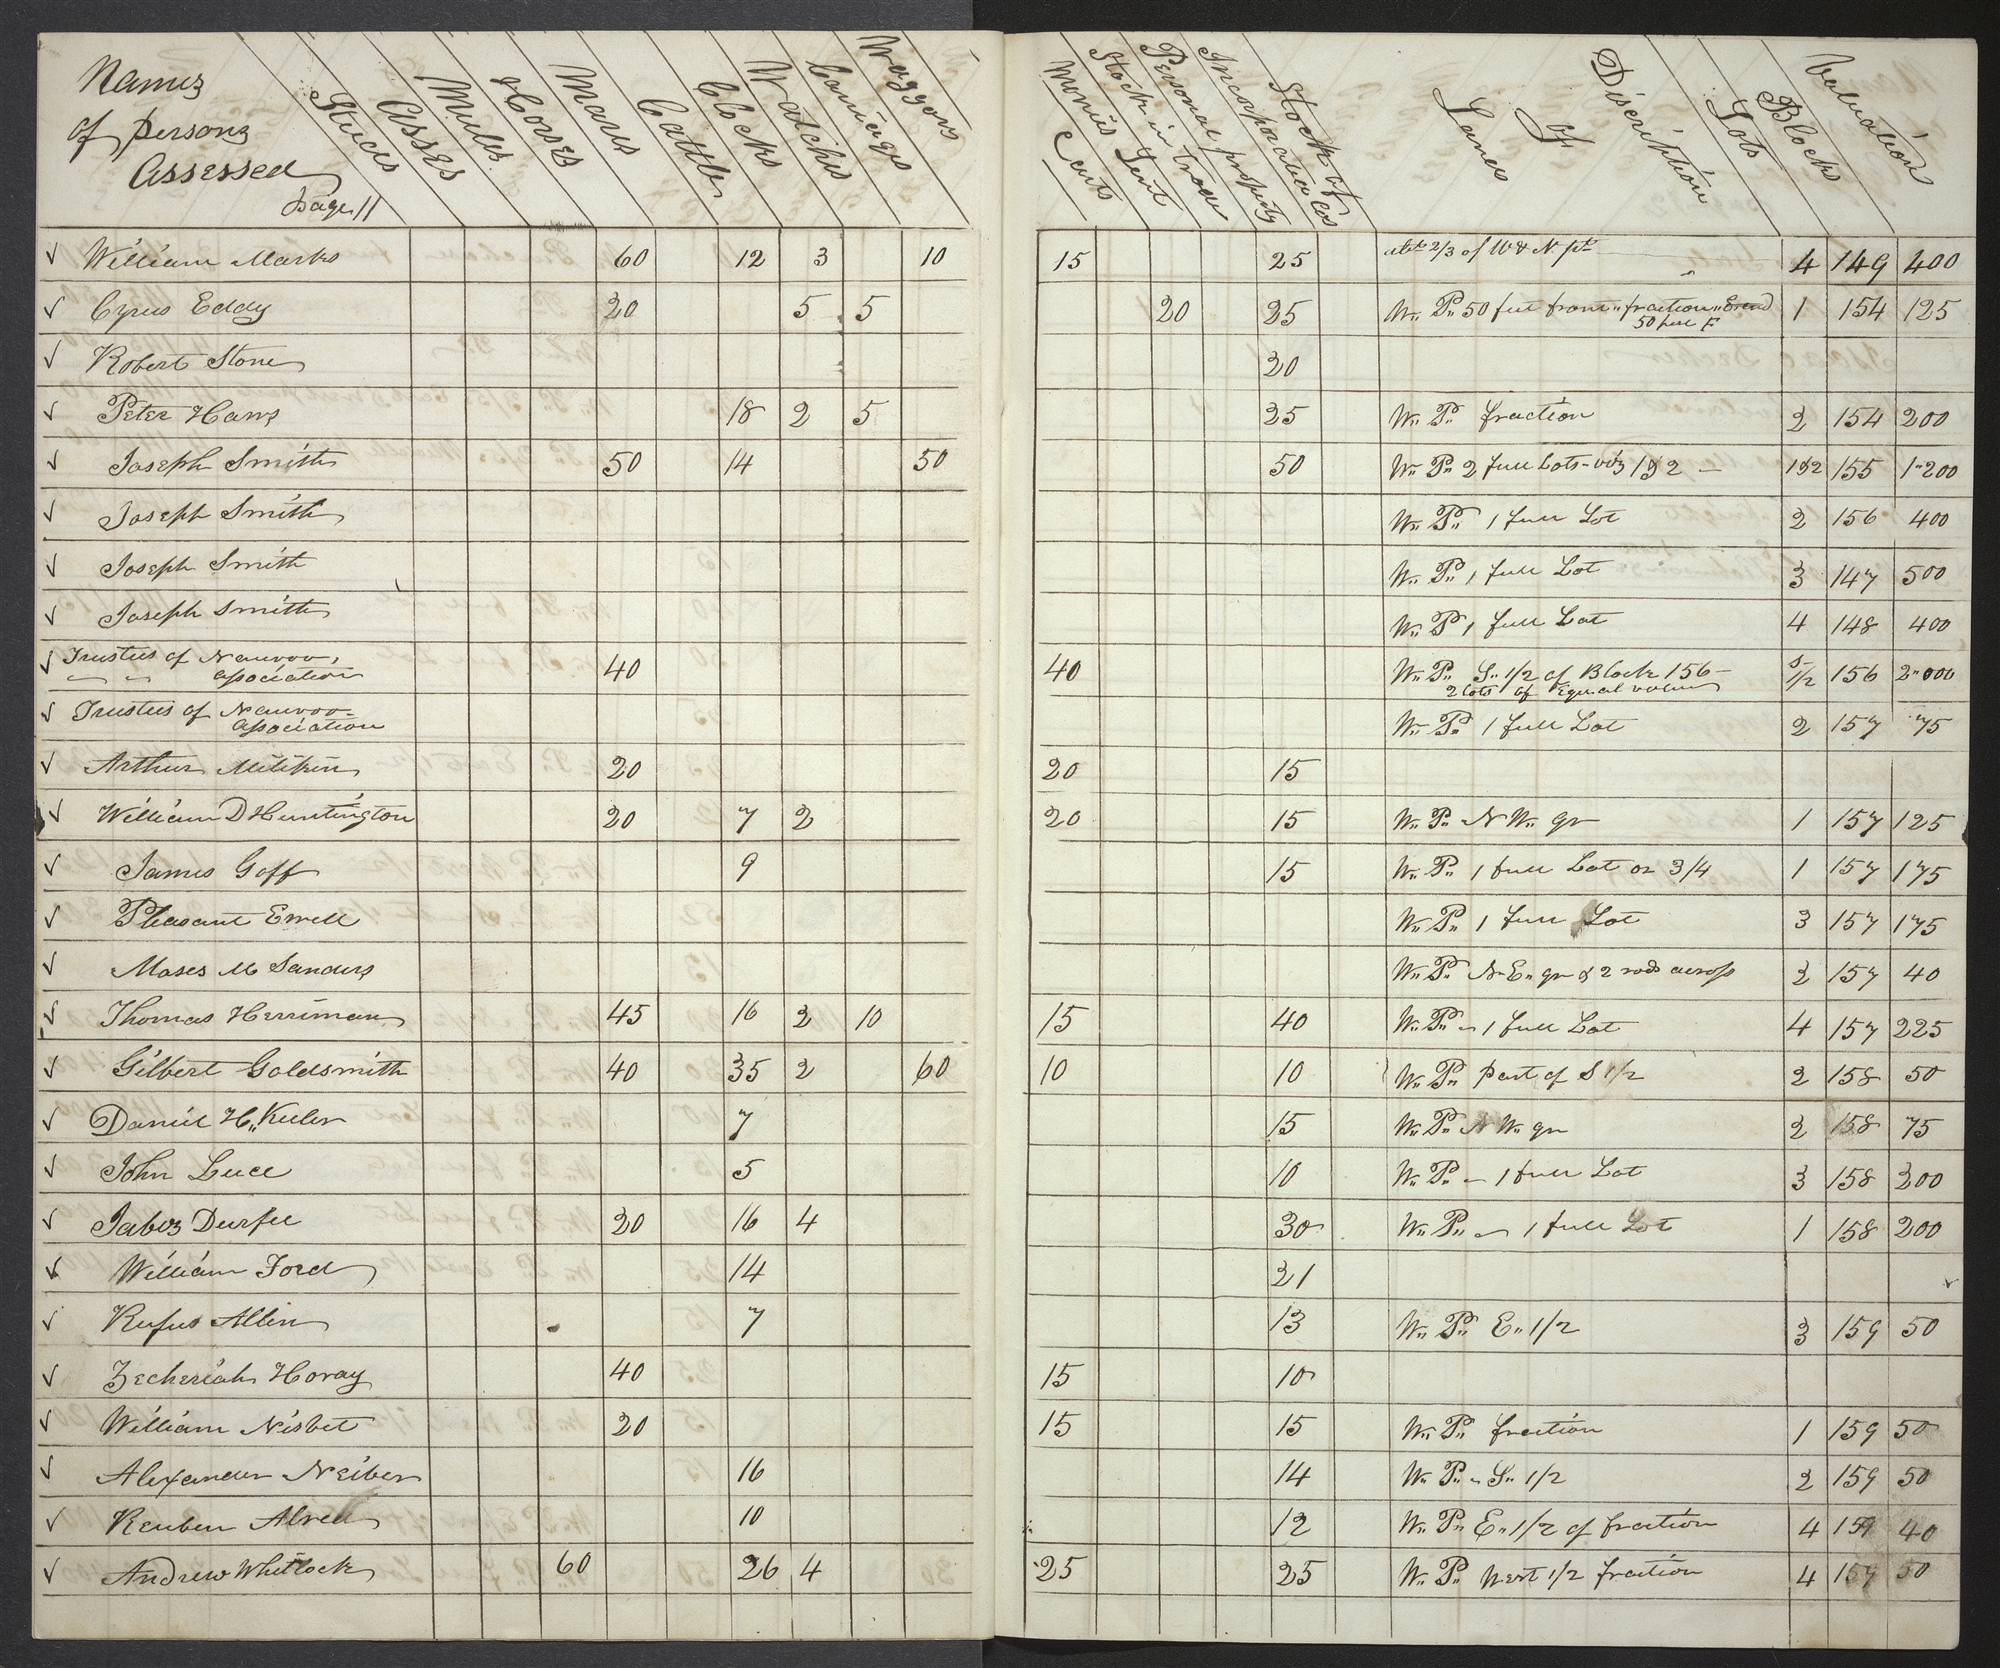 Names
of persons
Assessed
page 11
Steers
Asses
Mules
Horses
Mares
Cattle
Clocks
Watches
Carriages
Waggons
Carts
Monies Lent
Stock in trade
Personal property
Stock of
Incorporatia Cos
Discription
of
Lands
Lots
Blocks
Valuation
✓ William Marks 60 12 3 10 15 25 2/3 of W & N pt 4 149 400
✓ Cyrus Eddy 20 5 5 20 25 W" P" 50 feet front " fraction " 1 154 125
50 feet F
✓ Robert Stone 20
✓ Peter Haws 18 2 5 25 W" P" fraction 2 154 200
✓ Joseph Smith 50 14 50 50 W" P" 2 full Lots - viz 1 & 2 - 1&2 155 1"200
✓ Joseph Smith W" P" 1 full Lot 2 156 400
✓ Joseph Smith W" P" 1 full Lot 3 147 500
✓ Joseph Smith W" P 1 full Lot 4 148 400
✓ Trustees of Nauvoo, 40 40 W" P" S" 1/2 of Block 156 - S 1/2 156 2"000
" " association 2 lots of Equal value
✓ Trustees of Nauvoo W" P" 1 full Lot 2 157 75
association
✓ Arthur Milikin 20 20 15
✓ William D Huntington 20 7 2 20 15 W" P" N W" qr 1 157 125
✓ James Goff 9 15 W" P" 1 full Lot or 3/4 1 157 175
✓ Pleasant Ewell W" P" 1 full Lot 3 157 175
✓ Moses M Sanders W" P" N E" qr & 2 rods across 2 157 40
✓ Thomas Herriman 45 16 2 10 15 40 W" P" - 1 full Lot 4 157 225
✓ Gilbert Goldsmith 40 35 2 60 10 10 W" P" part of S 1/2 2 158 50
✓ Daniel H" Keeler 7 15 W" P" N W" qr 2 158 75
✓ John Luce 5 10 W" P" - 1 full Lot 3 158 200
✓ Jabez Durfee 20 16 4 30 W" P" - 1 full Lot 1 158 200
✓ William Ford 14 21
✓ Rufus Allen 7 13 W" P" E" 1/2 3 159 50
✓ Zecheriah Horay 40 15 10
✓ William Nisbet 20 15 15 W" P" fraction 1 159 50
✓ Alexander Neiber 16 14 W" P" " S" 1/2 2 159 50
✓ Reuben Alred 10 12 W" P" E" 1/2 of fraction 4 159 40
✓ Andrew Whitlock 60 26 4 25 25 W" P" West 1/2 fraction 4 159 50